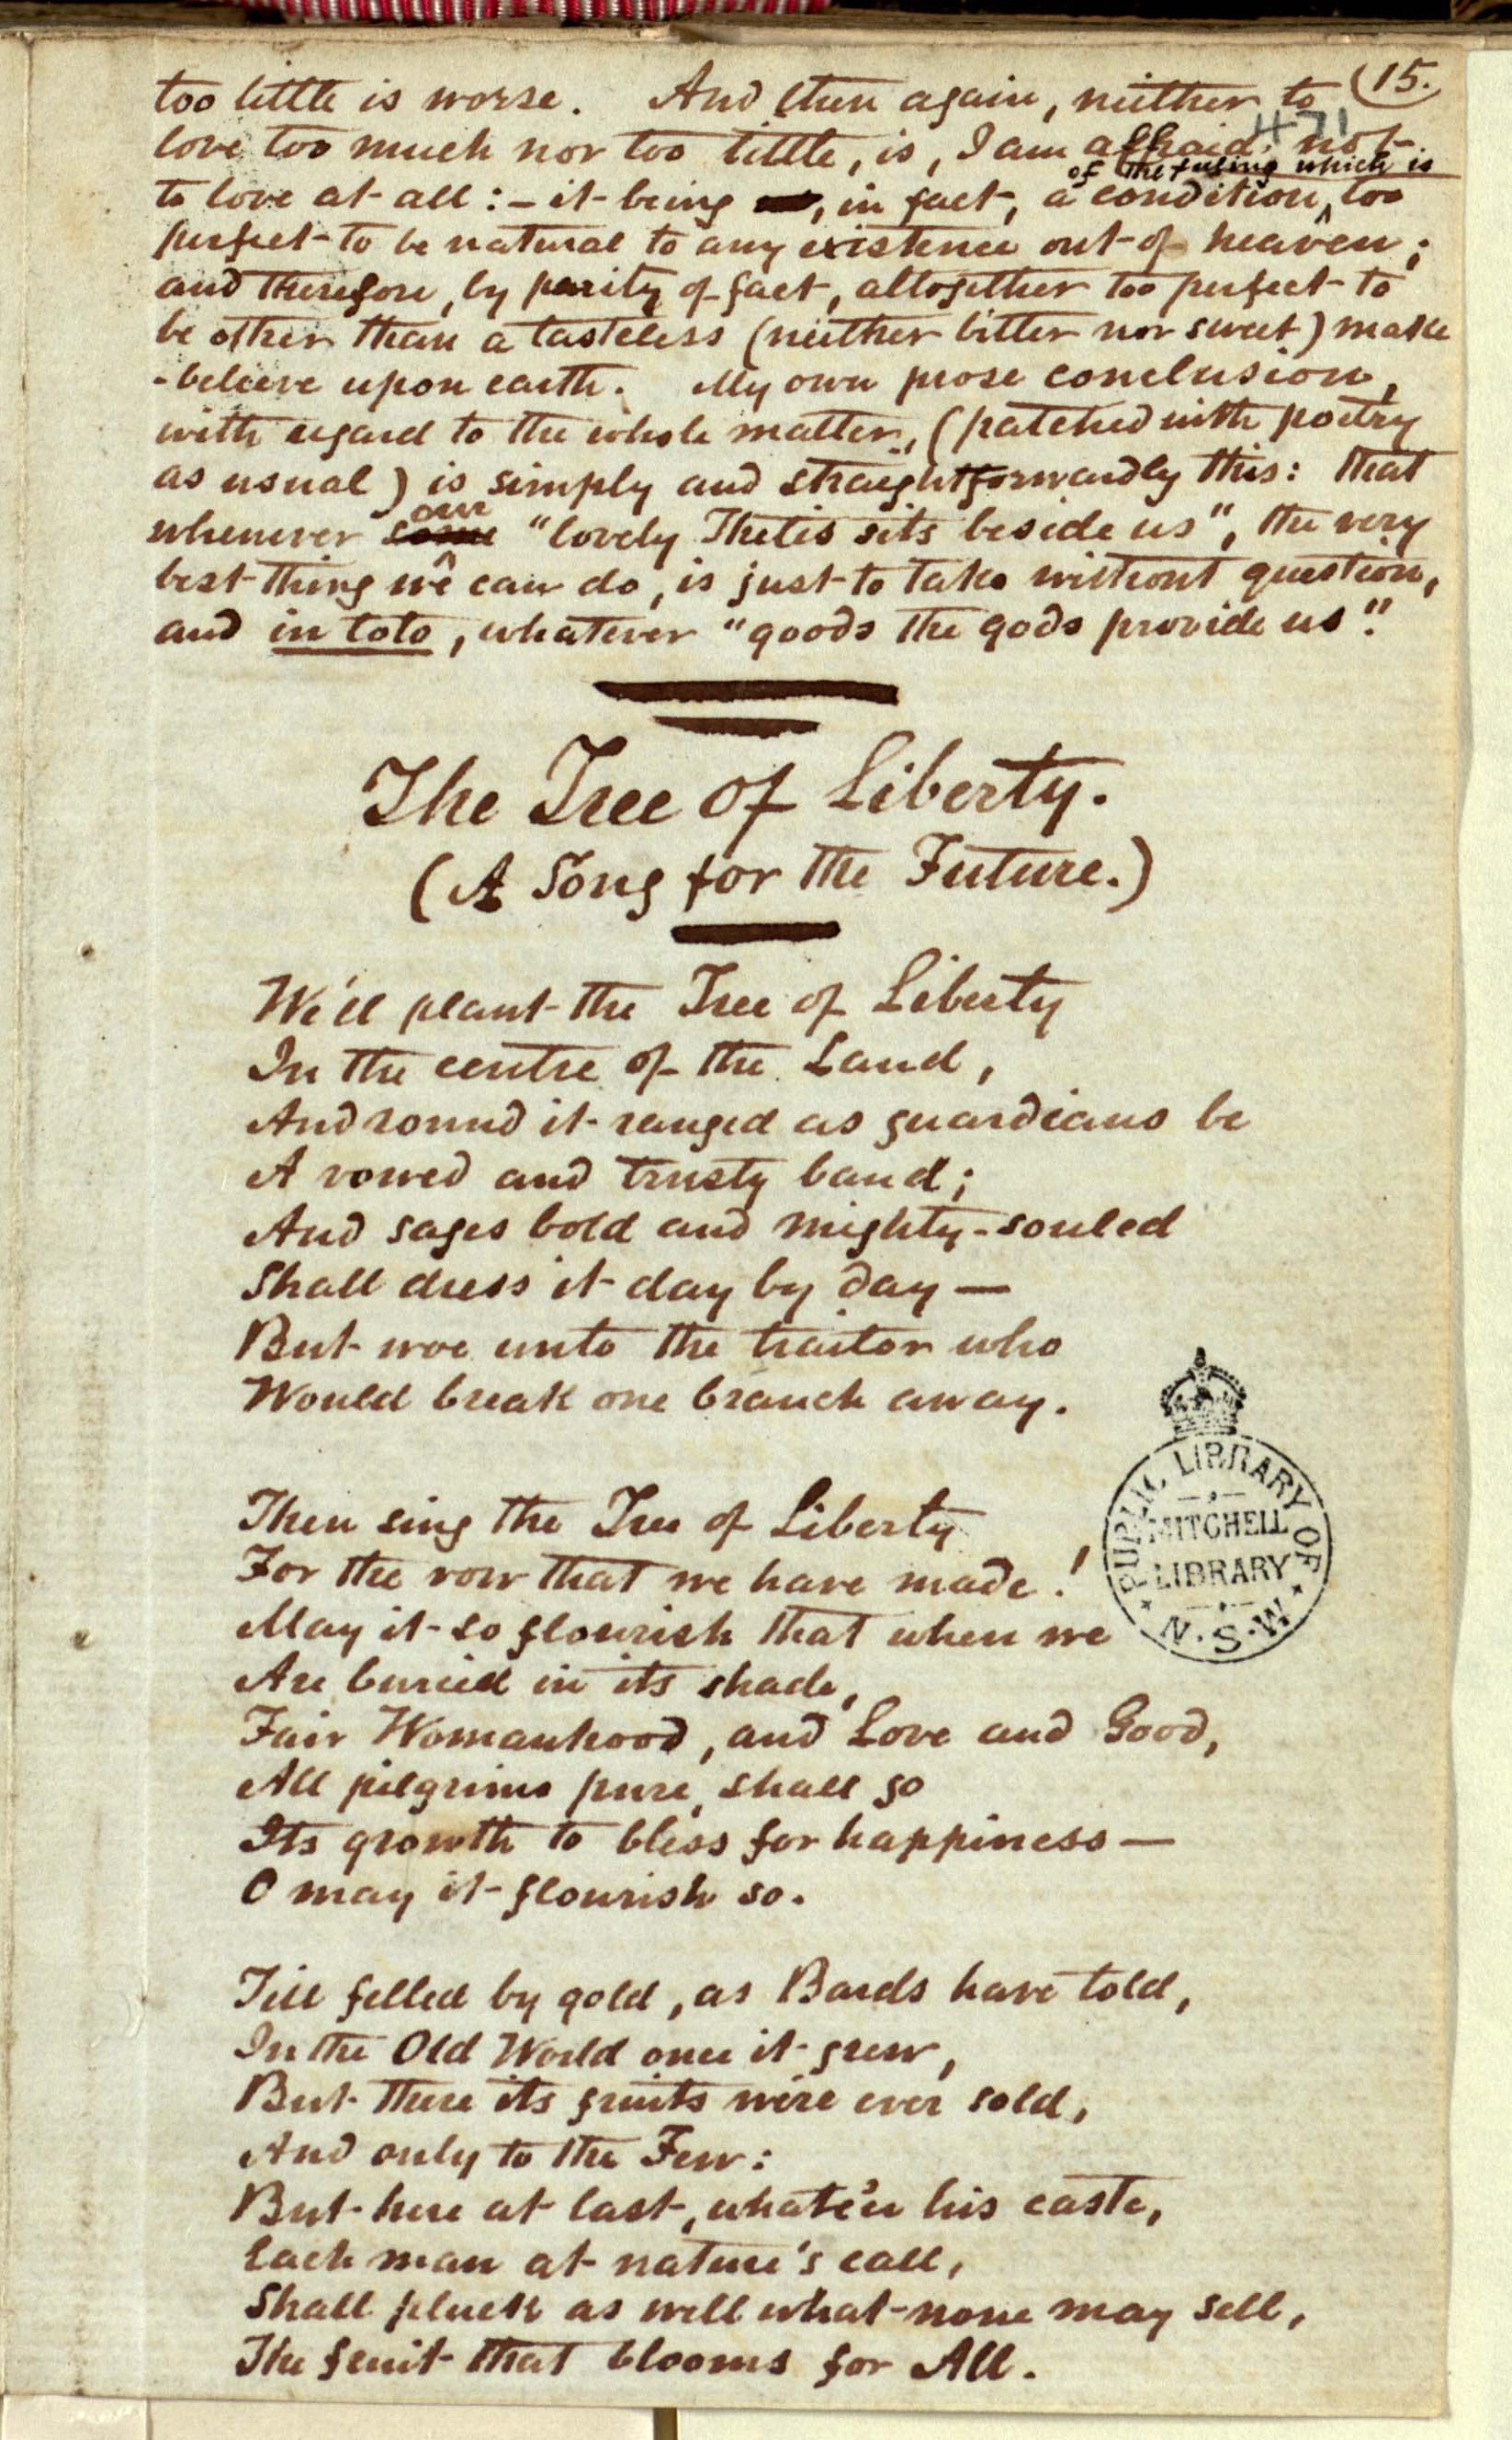 15.
471
too little is worse. And then again, neither to
love too much nor too little, is, I am affraid, not
of the feeling which is
to love at all :– it being , in fact, a condition, too
perfect to be natural to any existence out of heaven;
and therefore, by parity of fact, altogether too perfect to
be other than a tasteless (neither bitter nor sweet) make
-beleeve upon earth. My own prose conclusion,
with regard to the whole matter, (patched with poetry
as usual) is simply and straightforwardly this: that
our
whenever some "lovely Thetis sits beside us", the very
best thing we can do, is just to take without question,
and in toto, whatever "goods the gods provide us".
The Tree of Liberty.
(A Song for the Future.)
We'll plant the Tree of Liberty
In the centre of the Land,
And round it ranged as guardians be
A vowed and trusty band;
And sages bold and mighty-souled
Shall dress it day by day —
But woe unto the traitor who
Would break one branch away.
Then sing the Tree of Liberty
For the vow that we have made!
May it so flourish that when we
Are buried in its shade,
Fair Womanhood, and Love and Good,
All pilgrims pure, shall go
Its growth to bless for happiness —
O may it flourish so.
Till felled by gold, as Bards have told,
In the Old World once it grew,
But there its fruits were ever sold,
And only to the Few:
But here at last, whate'er his caste,
Each man at nature's call,
Shall pluck as well what none may sell,
The fruit that blooms for All.
PUBLIC LIBRARY OF
MITCHELL
LIBRARY
N.S.W.